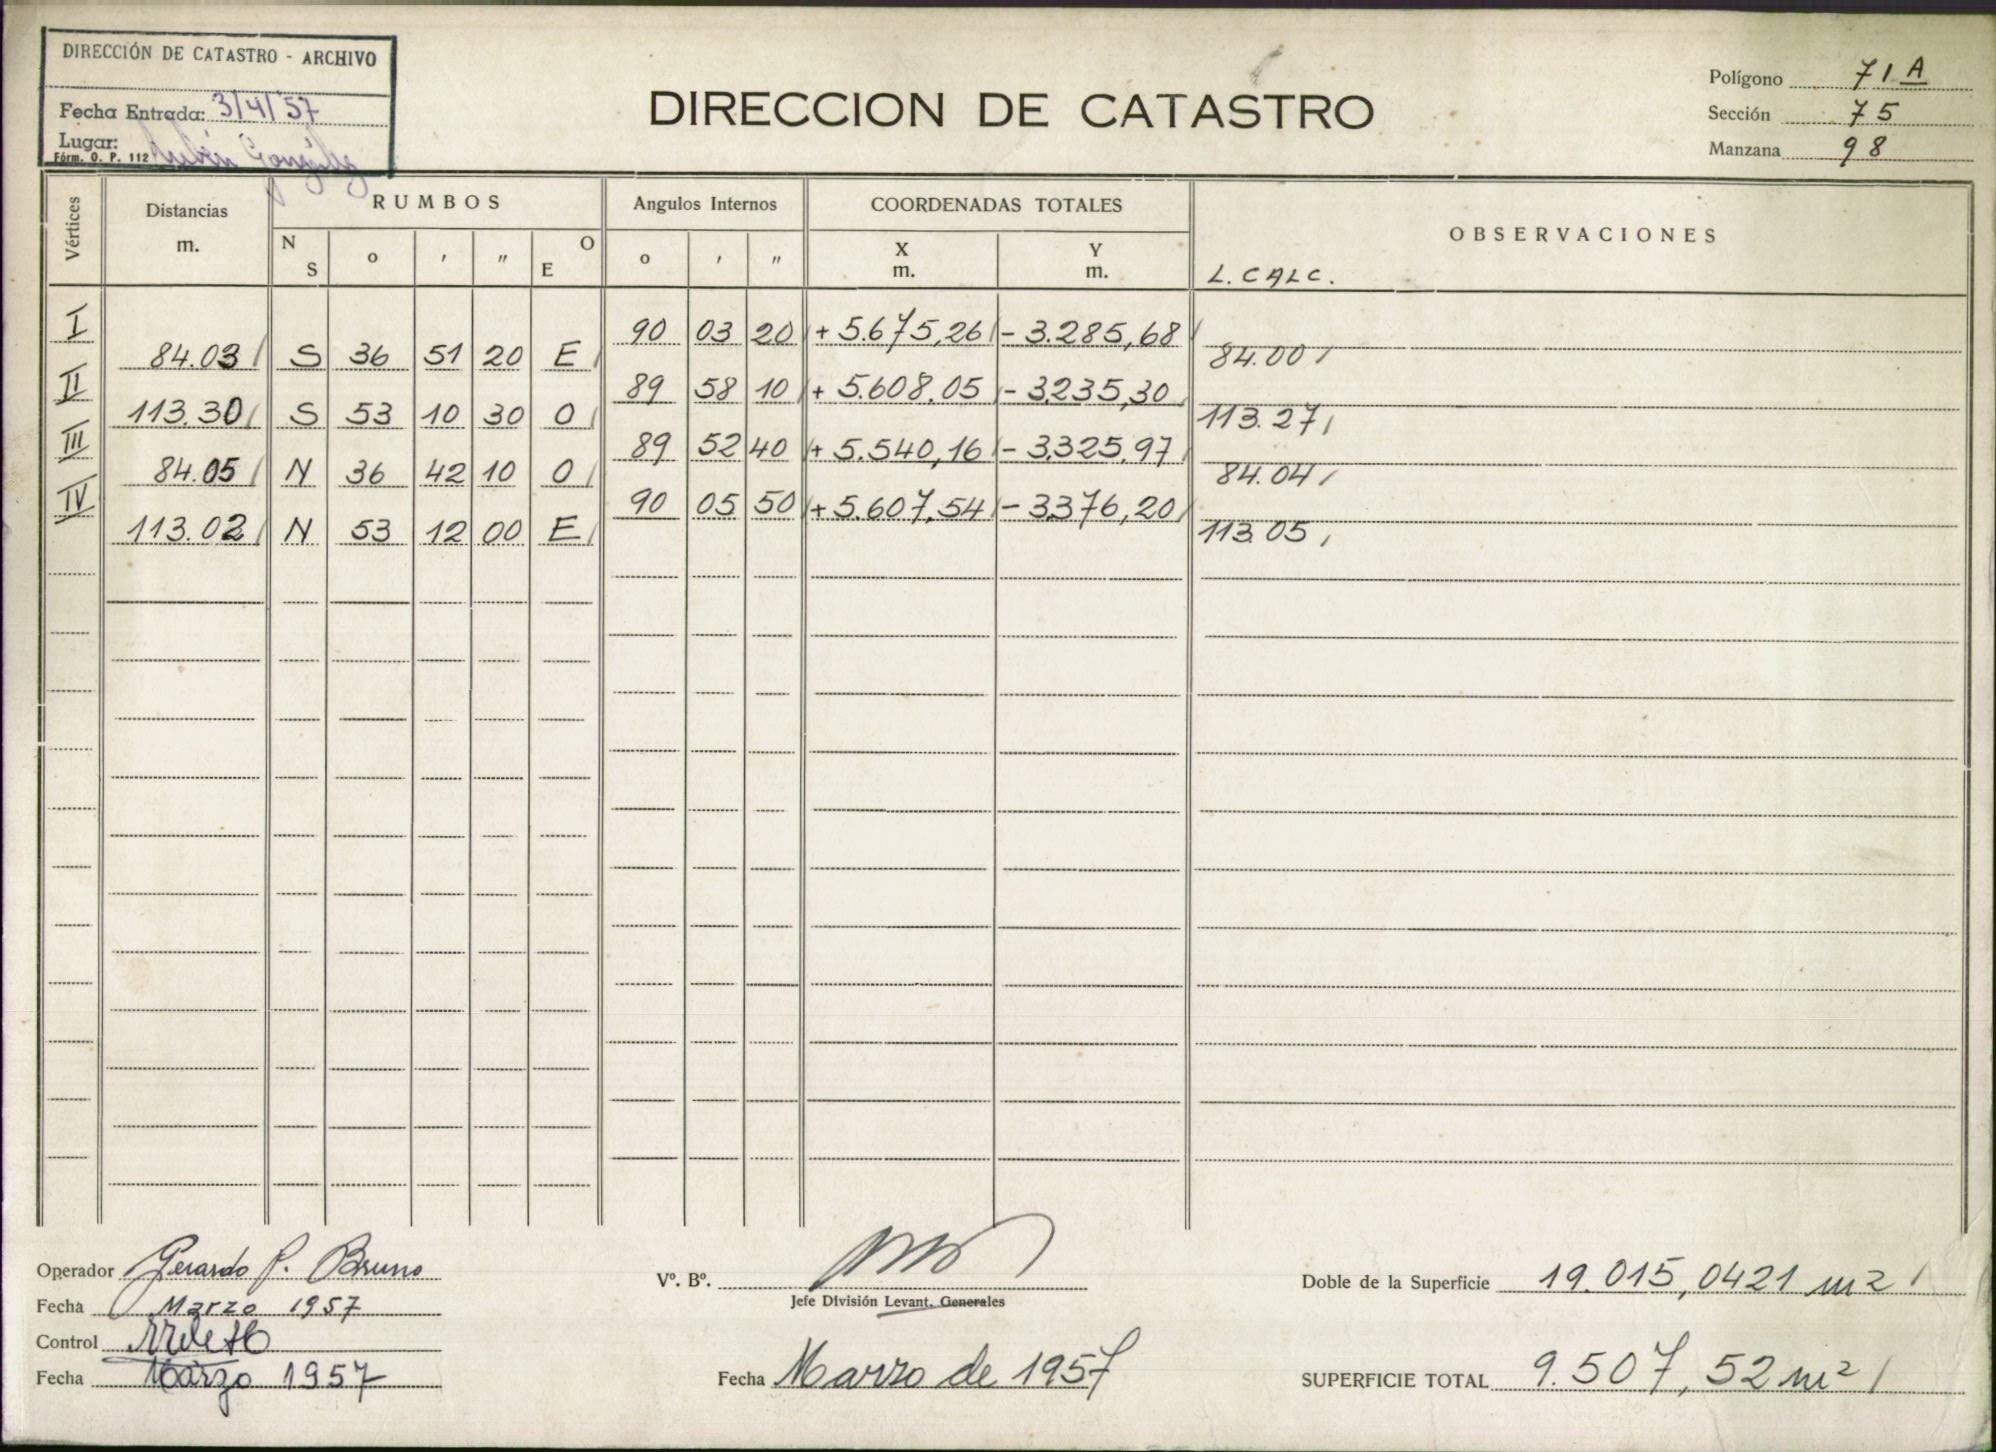 DIRECCIÓN DE CATASTRO - ARCHIVO
Fecha Entrada: 3/4/57
Lugar:
Fórm. O. P. 112
DIRECCION DE CATASTRO
Polígono 71 A
Sección 75
Manzana 98
Vértices Distancias m. RUMBOS Angulos Internos COORDENADAS TOTALES OBSERVACIONES
N S o ' " O E o ' " X m. Y m.
L. CALC.
I 90 03 20 + 5.675,26 - 3.285,68
84.03 S 36 51 20 E 84.00
II 89 58 10 + 5.608.05 - 3235,30
113.30 S 53 10 30 O 113.27
III 89 52 40 + 5.540,16 - 3.325.97
84.05 N 36 42 10 O 84.04
IV 90 05 50 + 5.607,54 - 3376,20
113.02 N 53 12 00 E 113.05
Operador Gerardo P. Bruno
Fecha Marzo 1957
Control
Fecha Marzo 1957
Vº. Bº.
Jefe División Levant. Generales
Fecha Marzo de 1957
Doble de la Superficie 19.015,0421 m2
SUPERFICIE TOTAL 9.507,52 m2